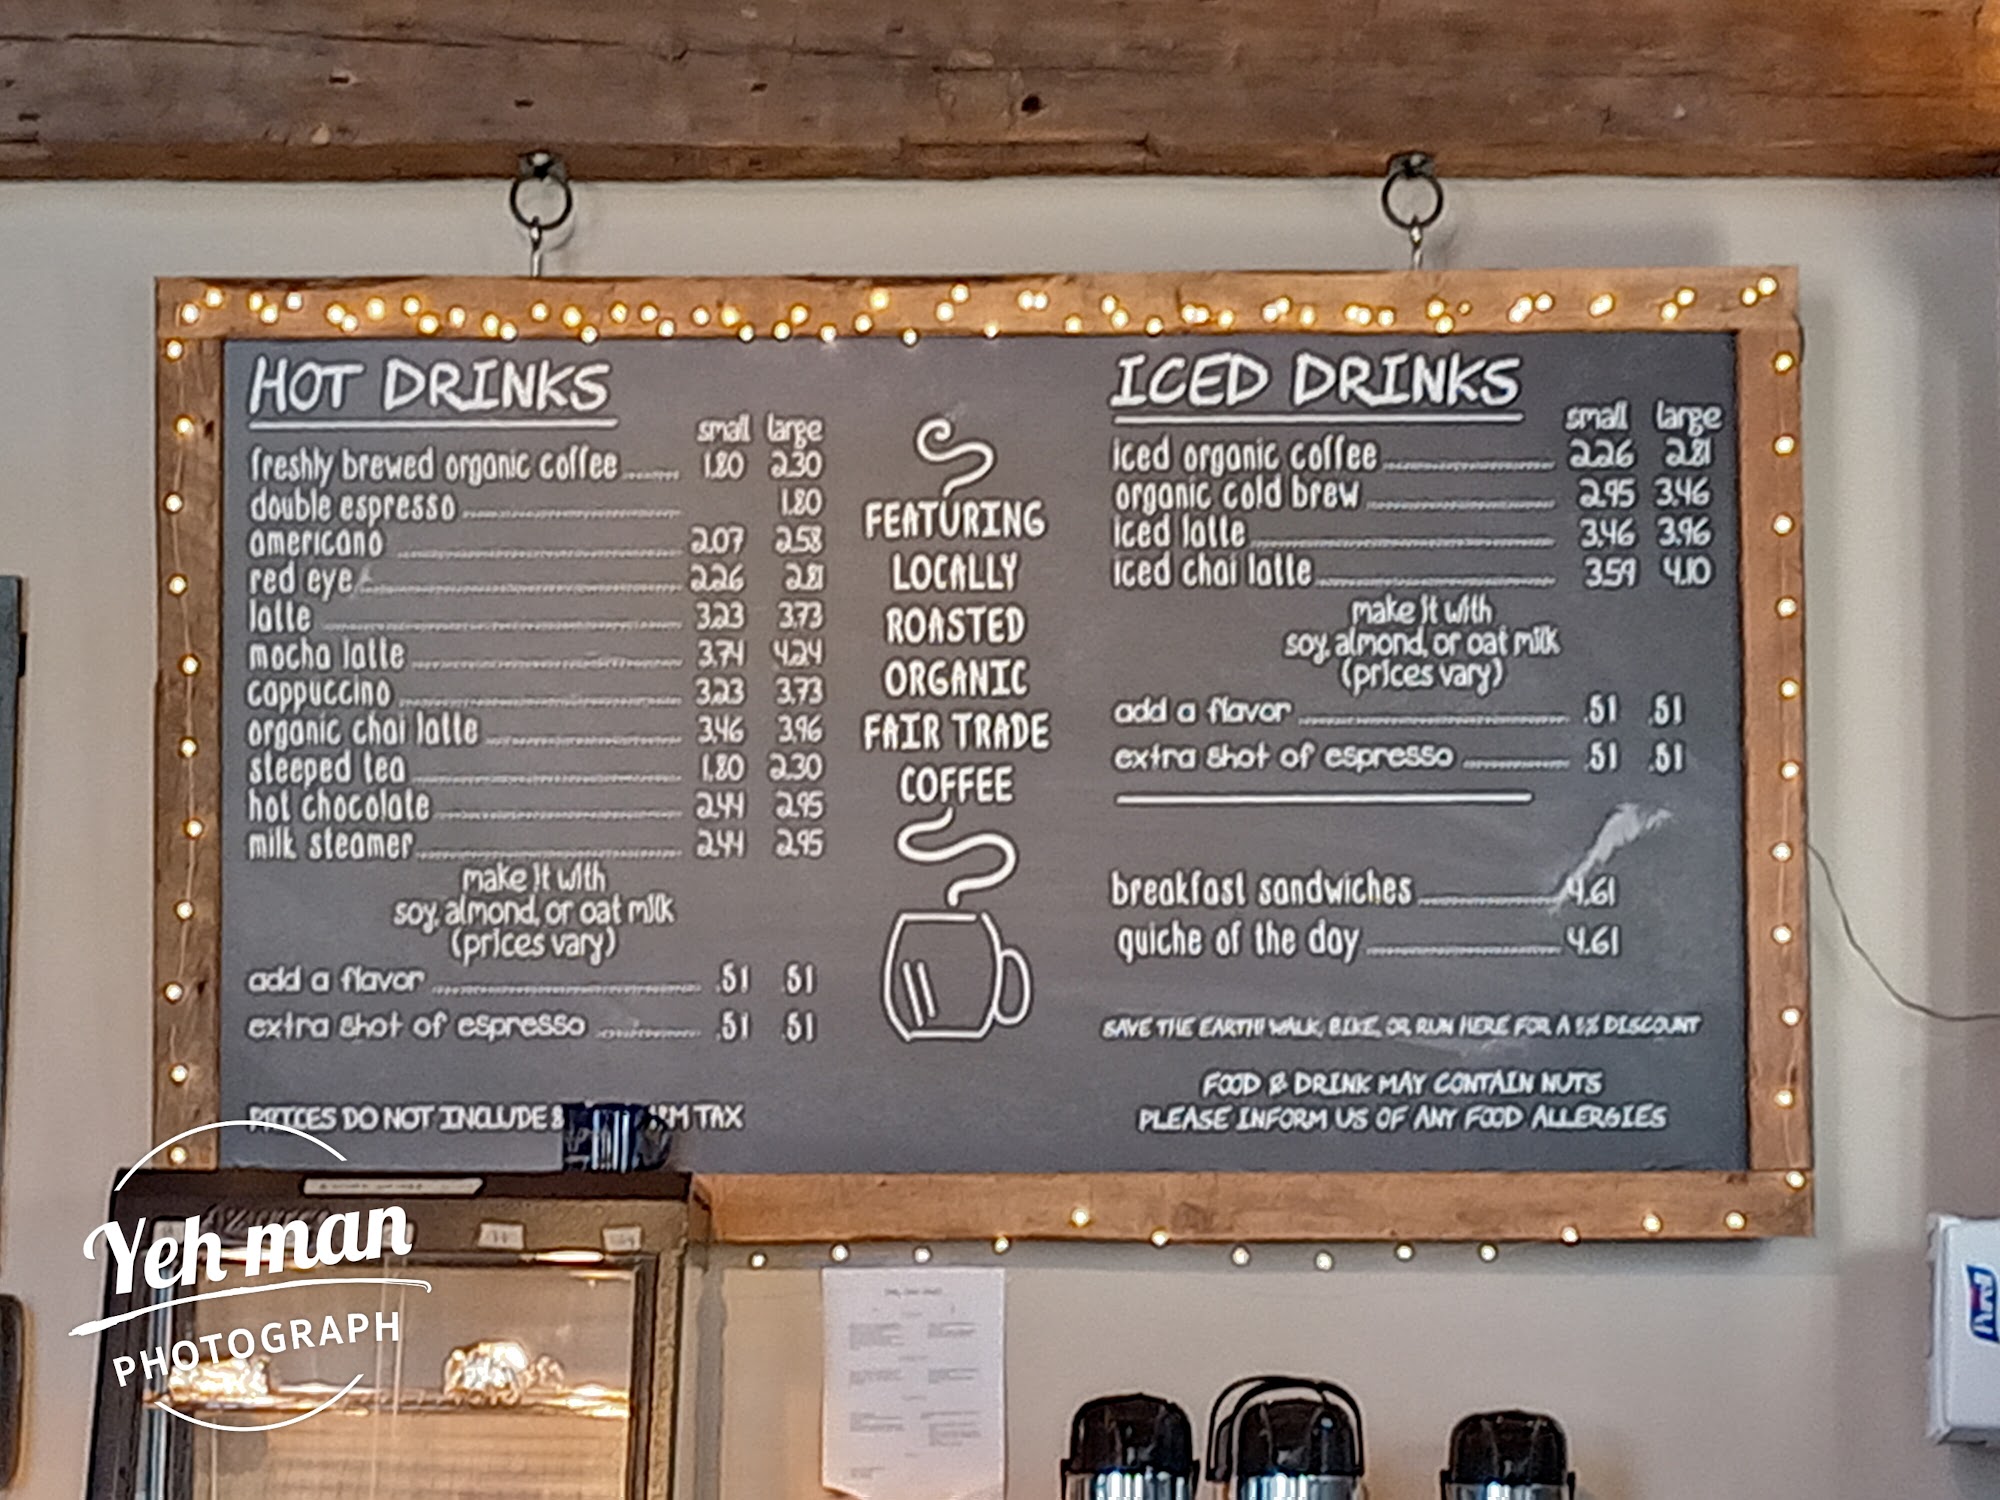 HOT DRINKS
small large
freshly brewed organic coffee 1.80 2.30
double espresso 1.80
americano 2.07 2.58
red eye 2.26 2.81
latte 3.23 3.73
mocha latte 3.74 4.24
cappuccino 3.23 3.73
organic chai latte 3.46 3.96
steeped tea 1.80 2.30
hot chocolate 2.44 2.95
milk steamer 2.44 2.95
make it with
soy, almond, or oat milk
(prices vary)
add a flavor .51 .51
extra shot of espresso .51 .51
PRICES DO NOT INCLUDE TAX
FEATURING
LOCALLY
ROASTED
ORGANIC
FAIR TRADE
COFFEE
ICED DRINKS
small large
iced organic coffee 2.26 2.81
organic cold brew 2.95 3.46
iced latte 3.46 3.96
iced chai latte 3.59 4.10
make it with
soy, almond, or oat milk
(prices vary)
add a flavor .51 .51
extra shot of espresso .51 .51
breakfast sandwiches 4.61
quiche of the day 4.61
SAVE THE EARTH! WALK, BIKE, OR RUN HERE FOR A DISCOUNT
FOOD & DRINK MAY CONTAIN NUTS
PLEASE INFORM US OF ANY FOOD ALLERGIES
Yeh man
PHOTOGRAPH